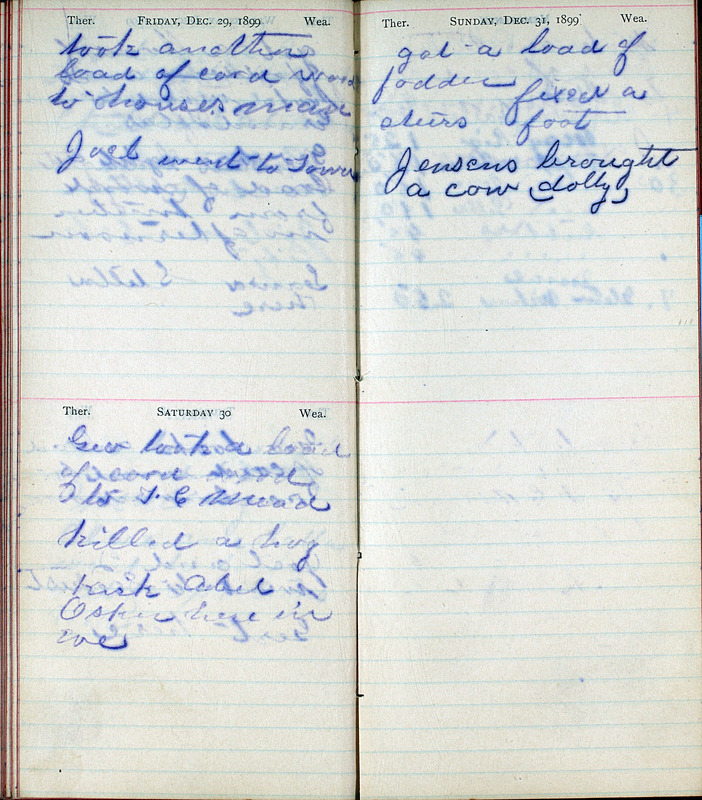 Ther. FRIDAY, DEC. 29, 1899 Wea.
took another
load of cord wood
to
Joel went to Town
Ther. SATURDAY 30 Wea.
Geo took a load
of cord wood
to T. C
killed a hog
Abel
here in
eve
Ther. SUNDAY, DEC. 31, 1899 Wea.
got a load of
fodder fixed a
foot
Jensens brought
a cow (dolly)